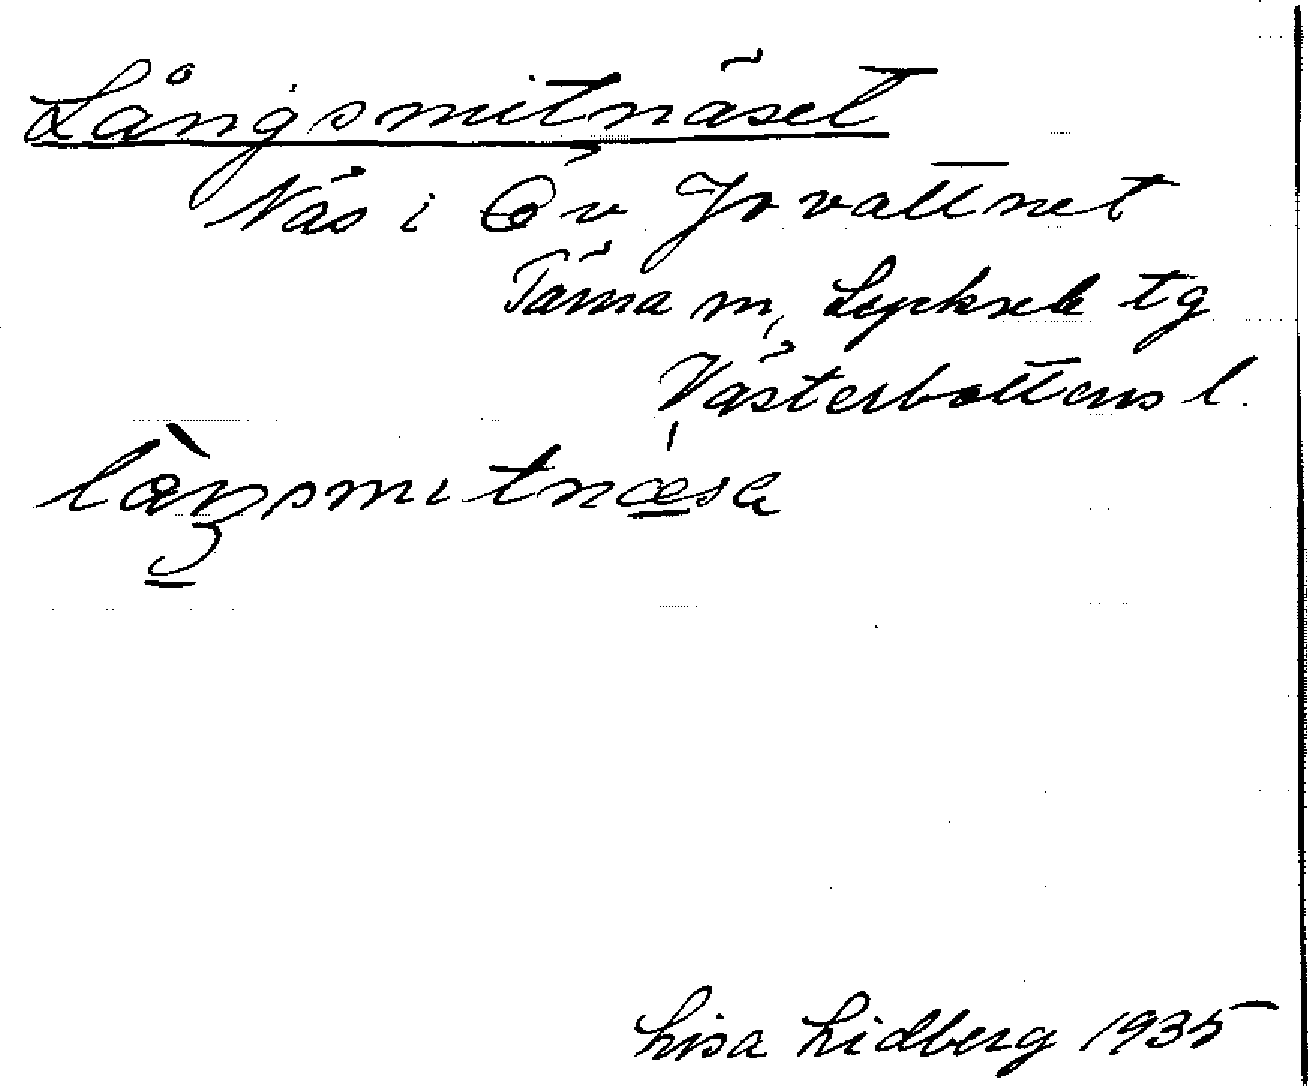 Långsmitnäset
Näs i Öv Jovattnet
Tärna sn, Lycksele tg
Västerbottens l.
læŋsmitnæsa
Lisa Lidberg 1935